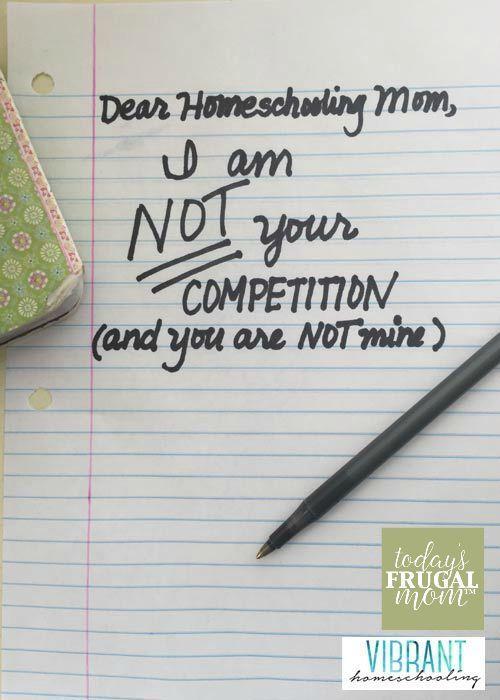 Dear Homeschooling Mom,
I am
NOT your
COMPETITION
(and you are NOT mine)
today's
FRUGAL
mom™
VIBRANT
homeschooling